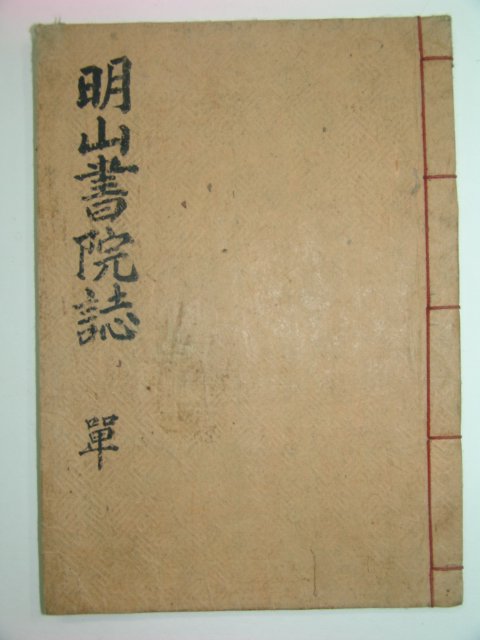 明山書院誌
單